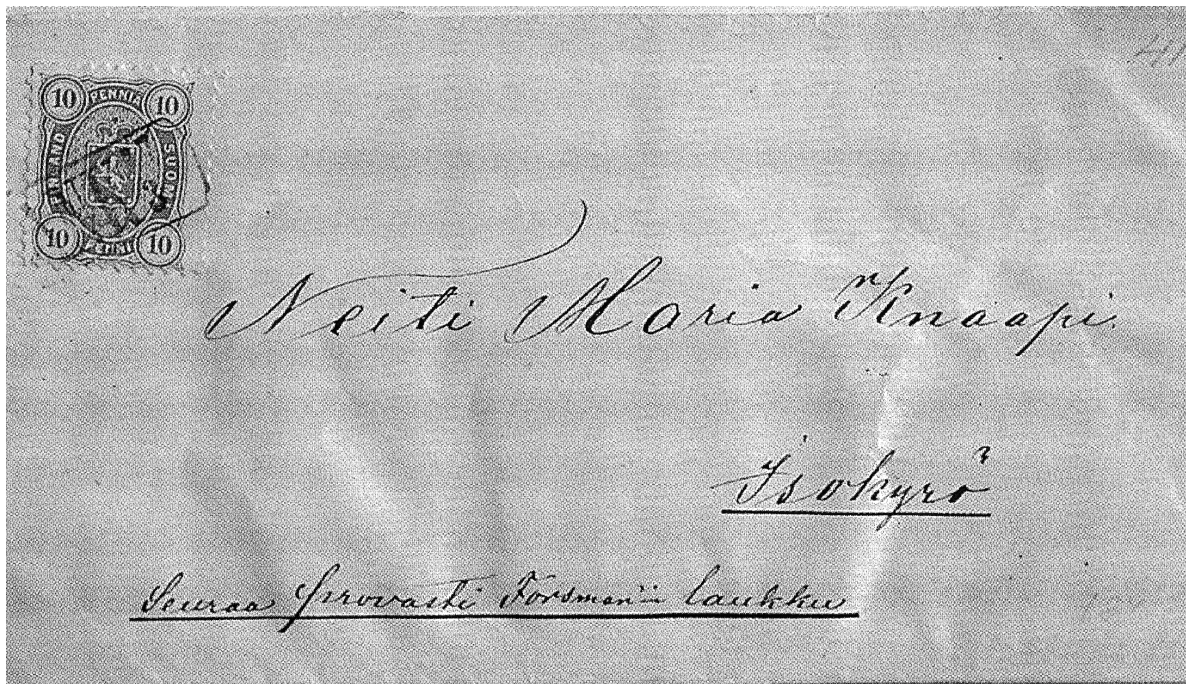 10 PENNIÄ 10
FINLAND SUOMI
10 PENNI 10
Neiti Maria Knaapi.
Isokyrö
Seuraa provasti Forsman'in laukku